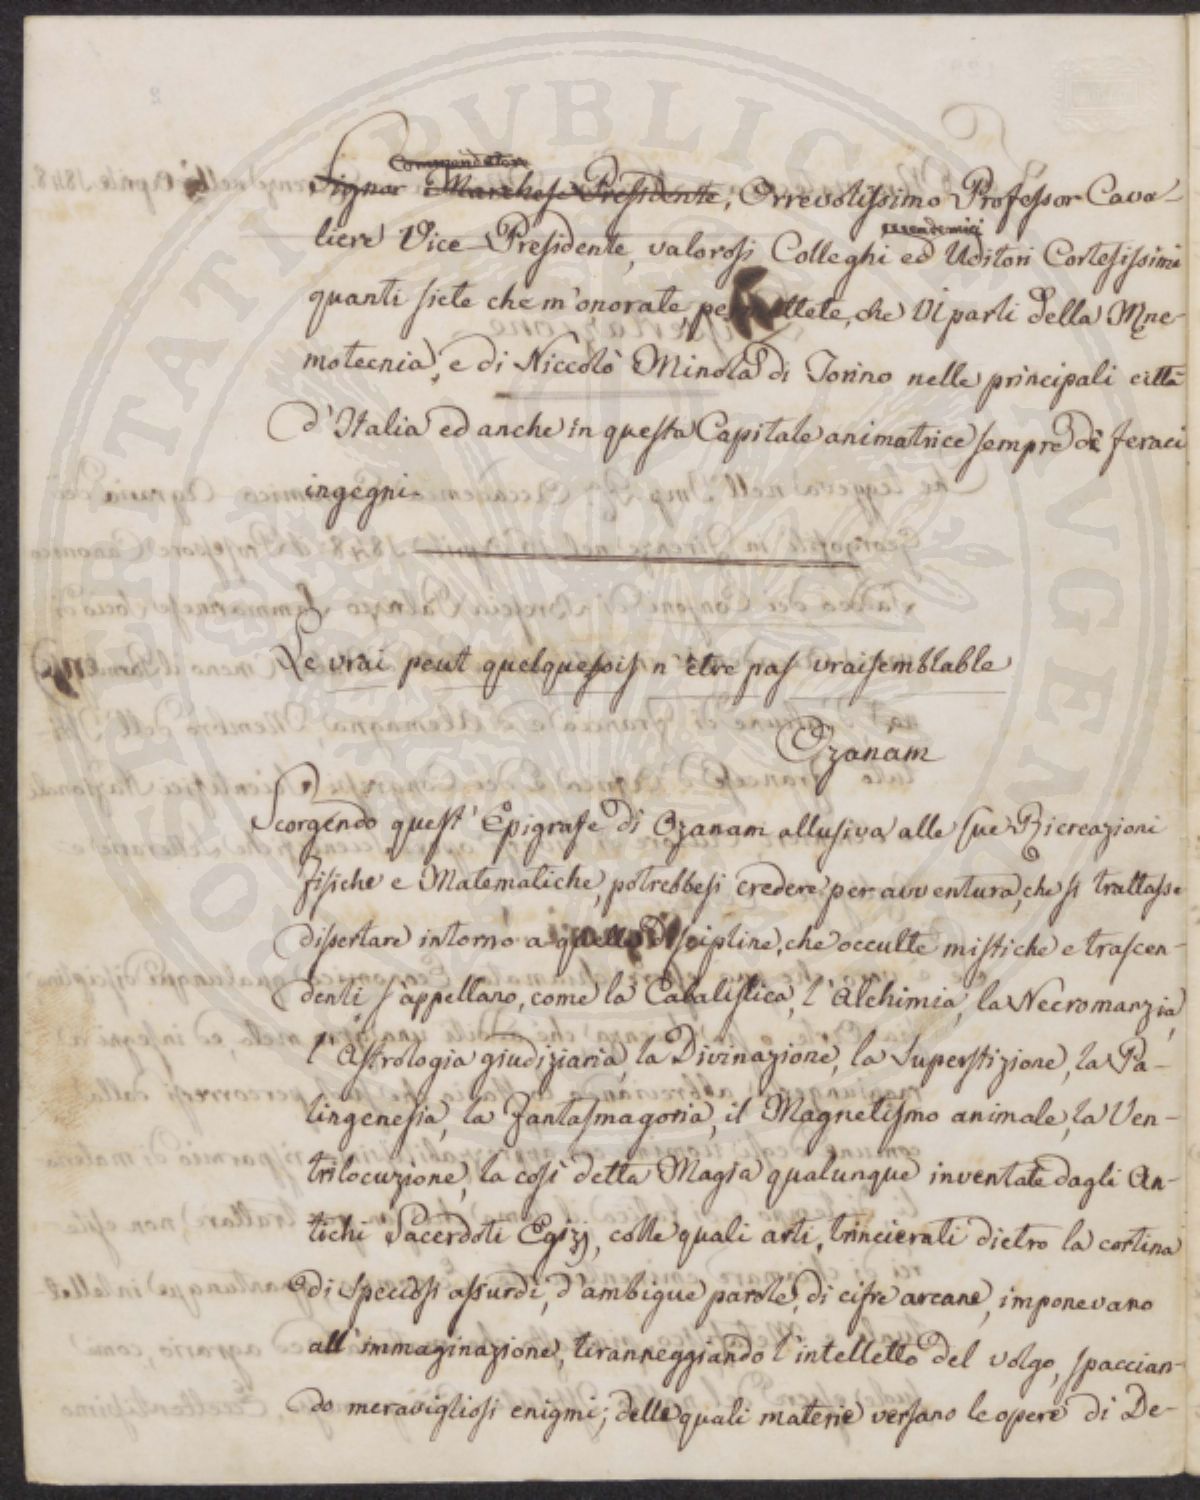 Commendatore
Signor Marchese Presidente, Orrevolissimo Professor Cava-
liere Vice-Presidente, valorosi Colleghi ed Uditori Cortesissimi
quanti siete che m'onorate permettete, che Vi parli della Mne-
motecnia, e di Niccolò Minola di Torino nelle principali città
d'Italia ed anche in questa Capitale animatrice sempre di feraci
ingegni.
Le vrai peut quelquefois n'être pas vraisemblable
Ozanam
Scorgendo quest'Epigrafe di Ozanam allusiva alle sue Ricreazioni
Fisiche e Matematiche, potrebbesi credere per avventura, che si trattasse
dissertare intorno a quelle discipline, che occulte mistiche e trascen-
denti s'appellano, come la Cabalistica, l'Alchimia, la Necromanzia,
l'Astrologia giudiziaria, la Divinazione, la Superstizione, la Pa-
lingenesia, la Fantasmagoria, il Magnetismo animale, la Ven-
trilocuzione, la così detta Magia qualunque inventate dagli An-
tichi Sacerdoti Egizj, colle quali arti, trincierati dietro la cortina
di speciosi assurdi, d'ambigue parole, di cifre arcane, imponevano
all'immaginazione, tiranneggiando l'intelletto del volgo, spaccian-
do meravigliosi enigmi; delle quali materie versano le opere di De-